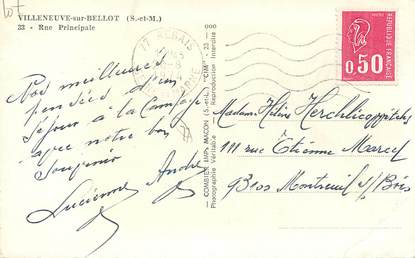 Lot
VILLENEUVE-sur-BELLOT (S.-et-M.)
32 - Rue Principale
Nos meilleures
pensées d'un
séjour à la Campagne
avec notre bon
souvenir
Lucienne André
COMBIER IMP. MACON (S.-et-L.) "CIM" - 23 - 000
Photographie Véritable Reproduction Interdite
77 REBAIS
REPUBLIQUE FRANÇAISE
0,50
Madame Hélène
111 rue Étienne Marcel
93100 Montreuil s/Bois